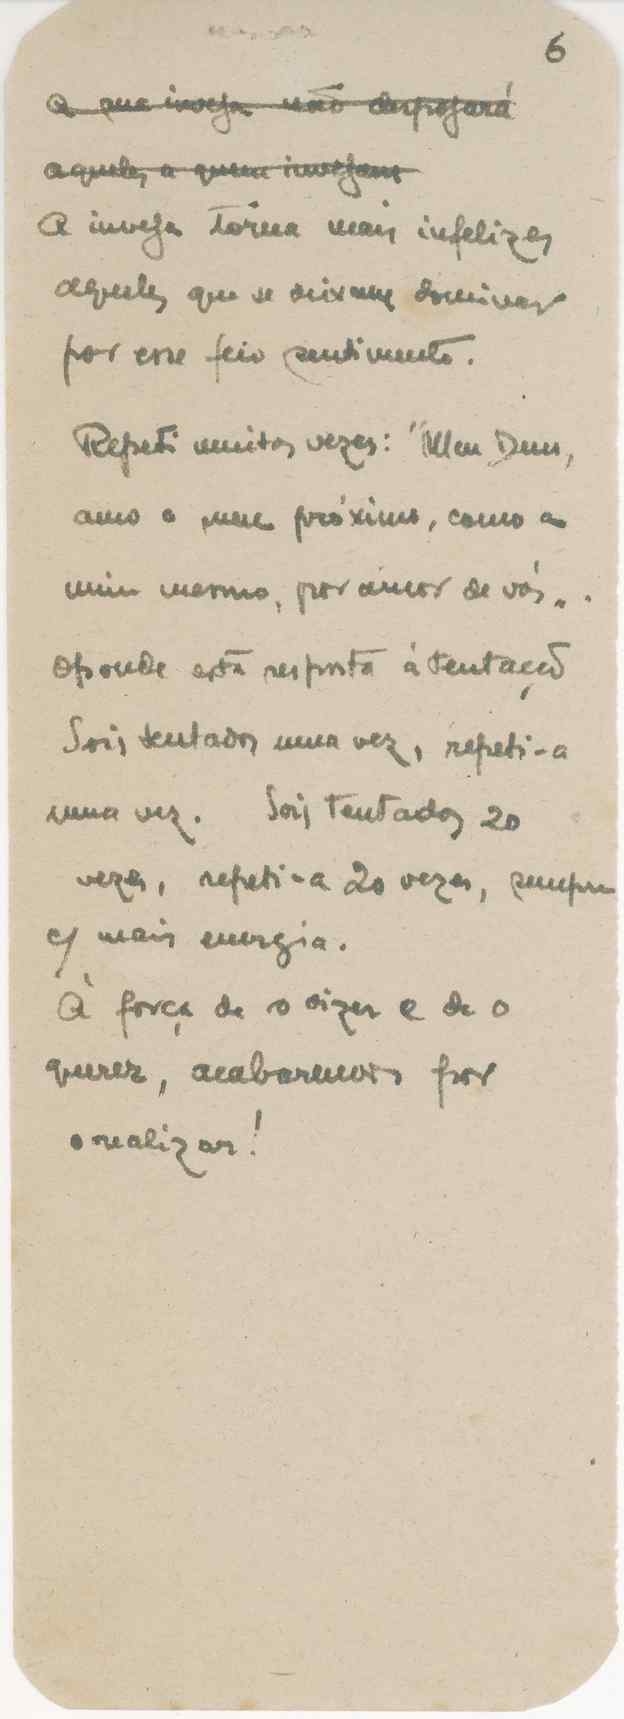 6
a sua inveja não despojará
aqueles a quem invejam
A inveja torna mais infelizes
aqueles que se deixam dominar
por esse feio sentimento.
Repeti muitas vezes: "Meu Deus,
amo o meu próximo, como a
mim mesmo, por amor de vós".
Oponde esta resposta á tentação
Sois tentados uma vez, repeti-a
uma vez. Sois tentados 20
vezes, repeti-a 20 vezes, sempre
c/ mais energia.
À força de o dizer e de o
querer, acabaremos por
o realizar!